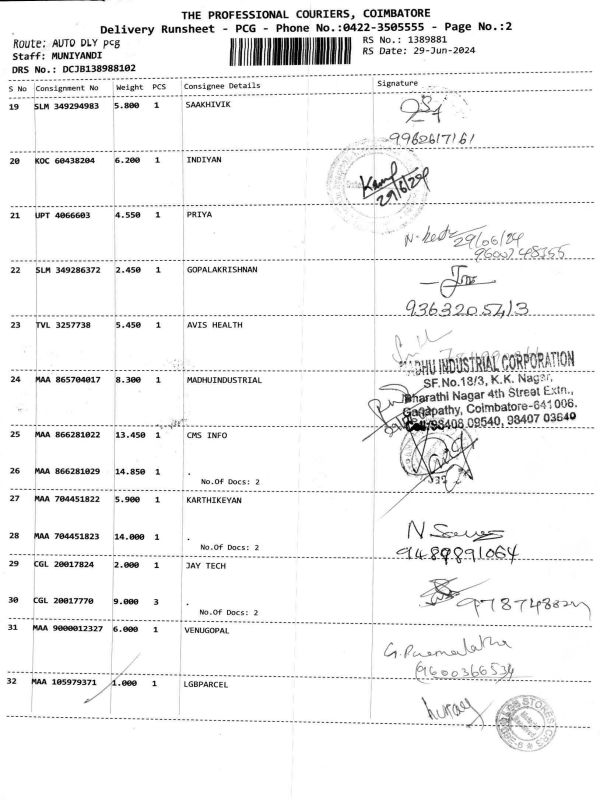 THE PROFESSIONAL COURIERS, COIMBATORE
Delivery Runsheet - PCG - Phone No.:0422-3505555 - Page No.:2
Route: AUTO DLY pcg
RS No.: 1389881
Staff: MUNIYANDI
RS Date: 29-Jun-2024
DRS No.: DCJB138988102
S No Consignment No Weight PCS Consignee Details Signature
19 SLM 349294983 5.800 1 SAAKHIVIK
9962617161
20 KOC 60438204 6.200 1 INDIYAN
29/6/24
21 UPT 4066603 4.550 1 PRIYA
29/06/24
22 SLM 349286372 2.450 1 GOPALAKRISHNAN
9363205413
23 TVL 3257738 5.450 1 AVIS HEALTH
MADHU INDUSTRIAL CORPORATION
24 MAA 865704017 8.300 1 MADHUINDUSTRIAL
SF.No.18/3, K.K. Nagar,
Bharathi Nagar 4th Street Extn.,
Ganapathy, Coimbatore-641006.
Cell:98408 09540, 98407 03640
25 MAA 866281022 13.450 1 CMS INFO
26 MAA 866281029 14.850 1 .
No.Of Docs: 2
27 MAA 704451822 5.900 1 KARTHIKEYAN
28 MAA 704451823 14.000 1 .
No.Of Docs: 2
9489891064
29 CGL 20017824 2.000 1 JAY TECH
30 CGL 20017770 9.000 3 .
No.Of Docs: 2
31 MAA 9000012327 6.000 1 VENUGOPAL
9600366534
32 MAA 105979371 1.000 1 LGBPARCEL